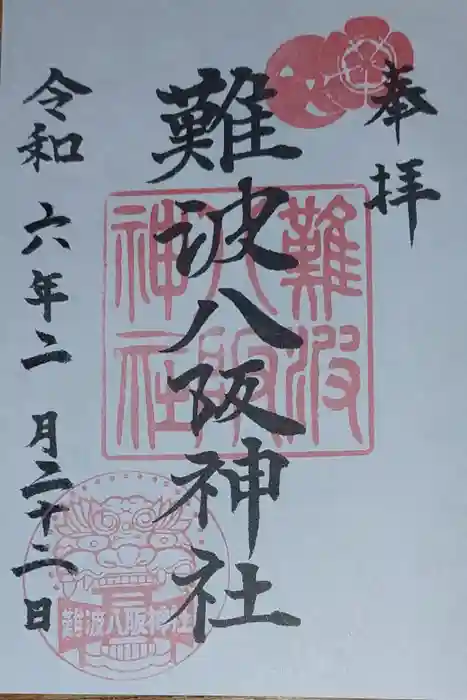 奉拝
難波八阪神社
令和六年二月二十二日
難波八阪神社
難波八阪神社